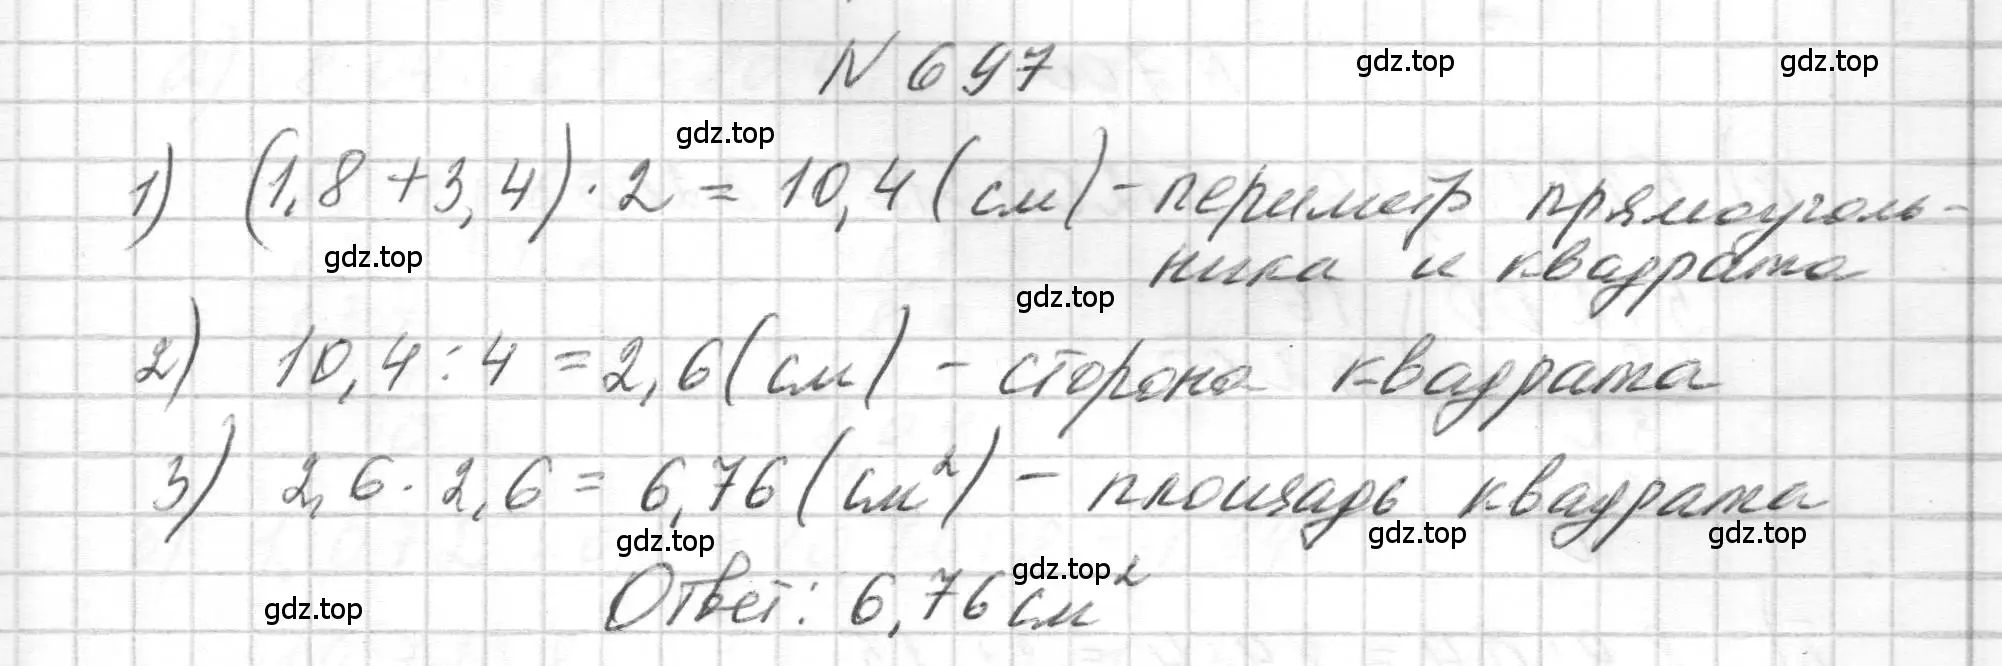 N 697
gdz.top gdz.top
gdz.top
1) (1,8 + 3,4) · 2 = 10,4 (см) - периметр прямоуголь-
ника и квадрата
gdz.top
gdz.top
2) 10,4 : 4 = 2,6 (см) - сторона квадрата
3) 2,6 · 2,6 = 6,76 (см²) - площадь квадрата
gdz.top gdz.top gdz.top
Ответ: 6,76 см²
gdz.top
gdz.top